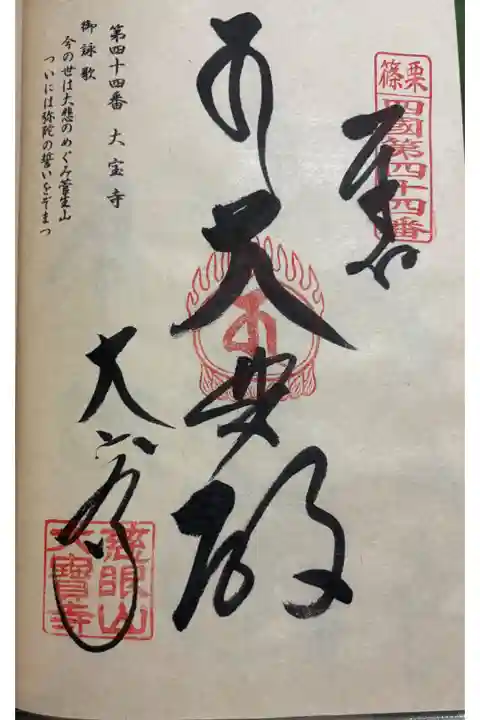 篠栗
四國第四十四番
大悲殿
第四十四番　大宝寺
御詠歌
今の世は大悲のめぐみ菅生山
ついには弥陀の誓いをぞまつ
大宝寺
慈眼山
大寶寺